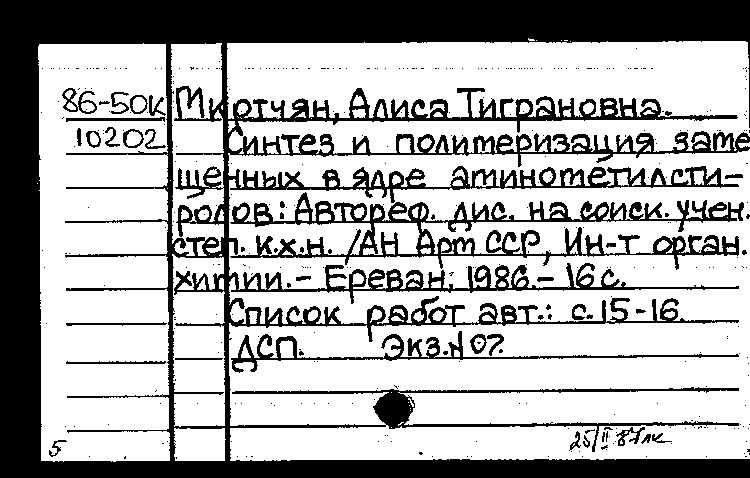 86-50к Мкртчян, Алиса Тиграновна.
10202 Синтез и полимеризация заме
щенных в ядре аминометилсти-
ролов: Автореф. дис. на соиск. учен.
степ. к.х.н. /АН Арм ССР, Ин-т орган.
химии.- Ереван, 1986.- 16 с.
Список работ авт.: с. 15-16.
ДСП. Экз.N 07.
25/II 87
5